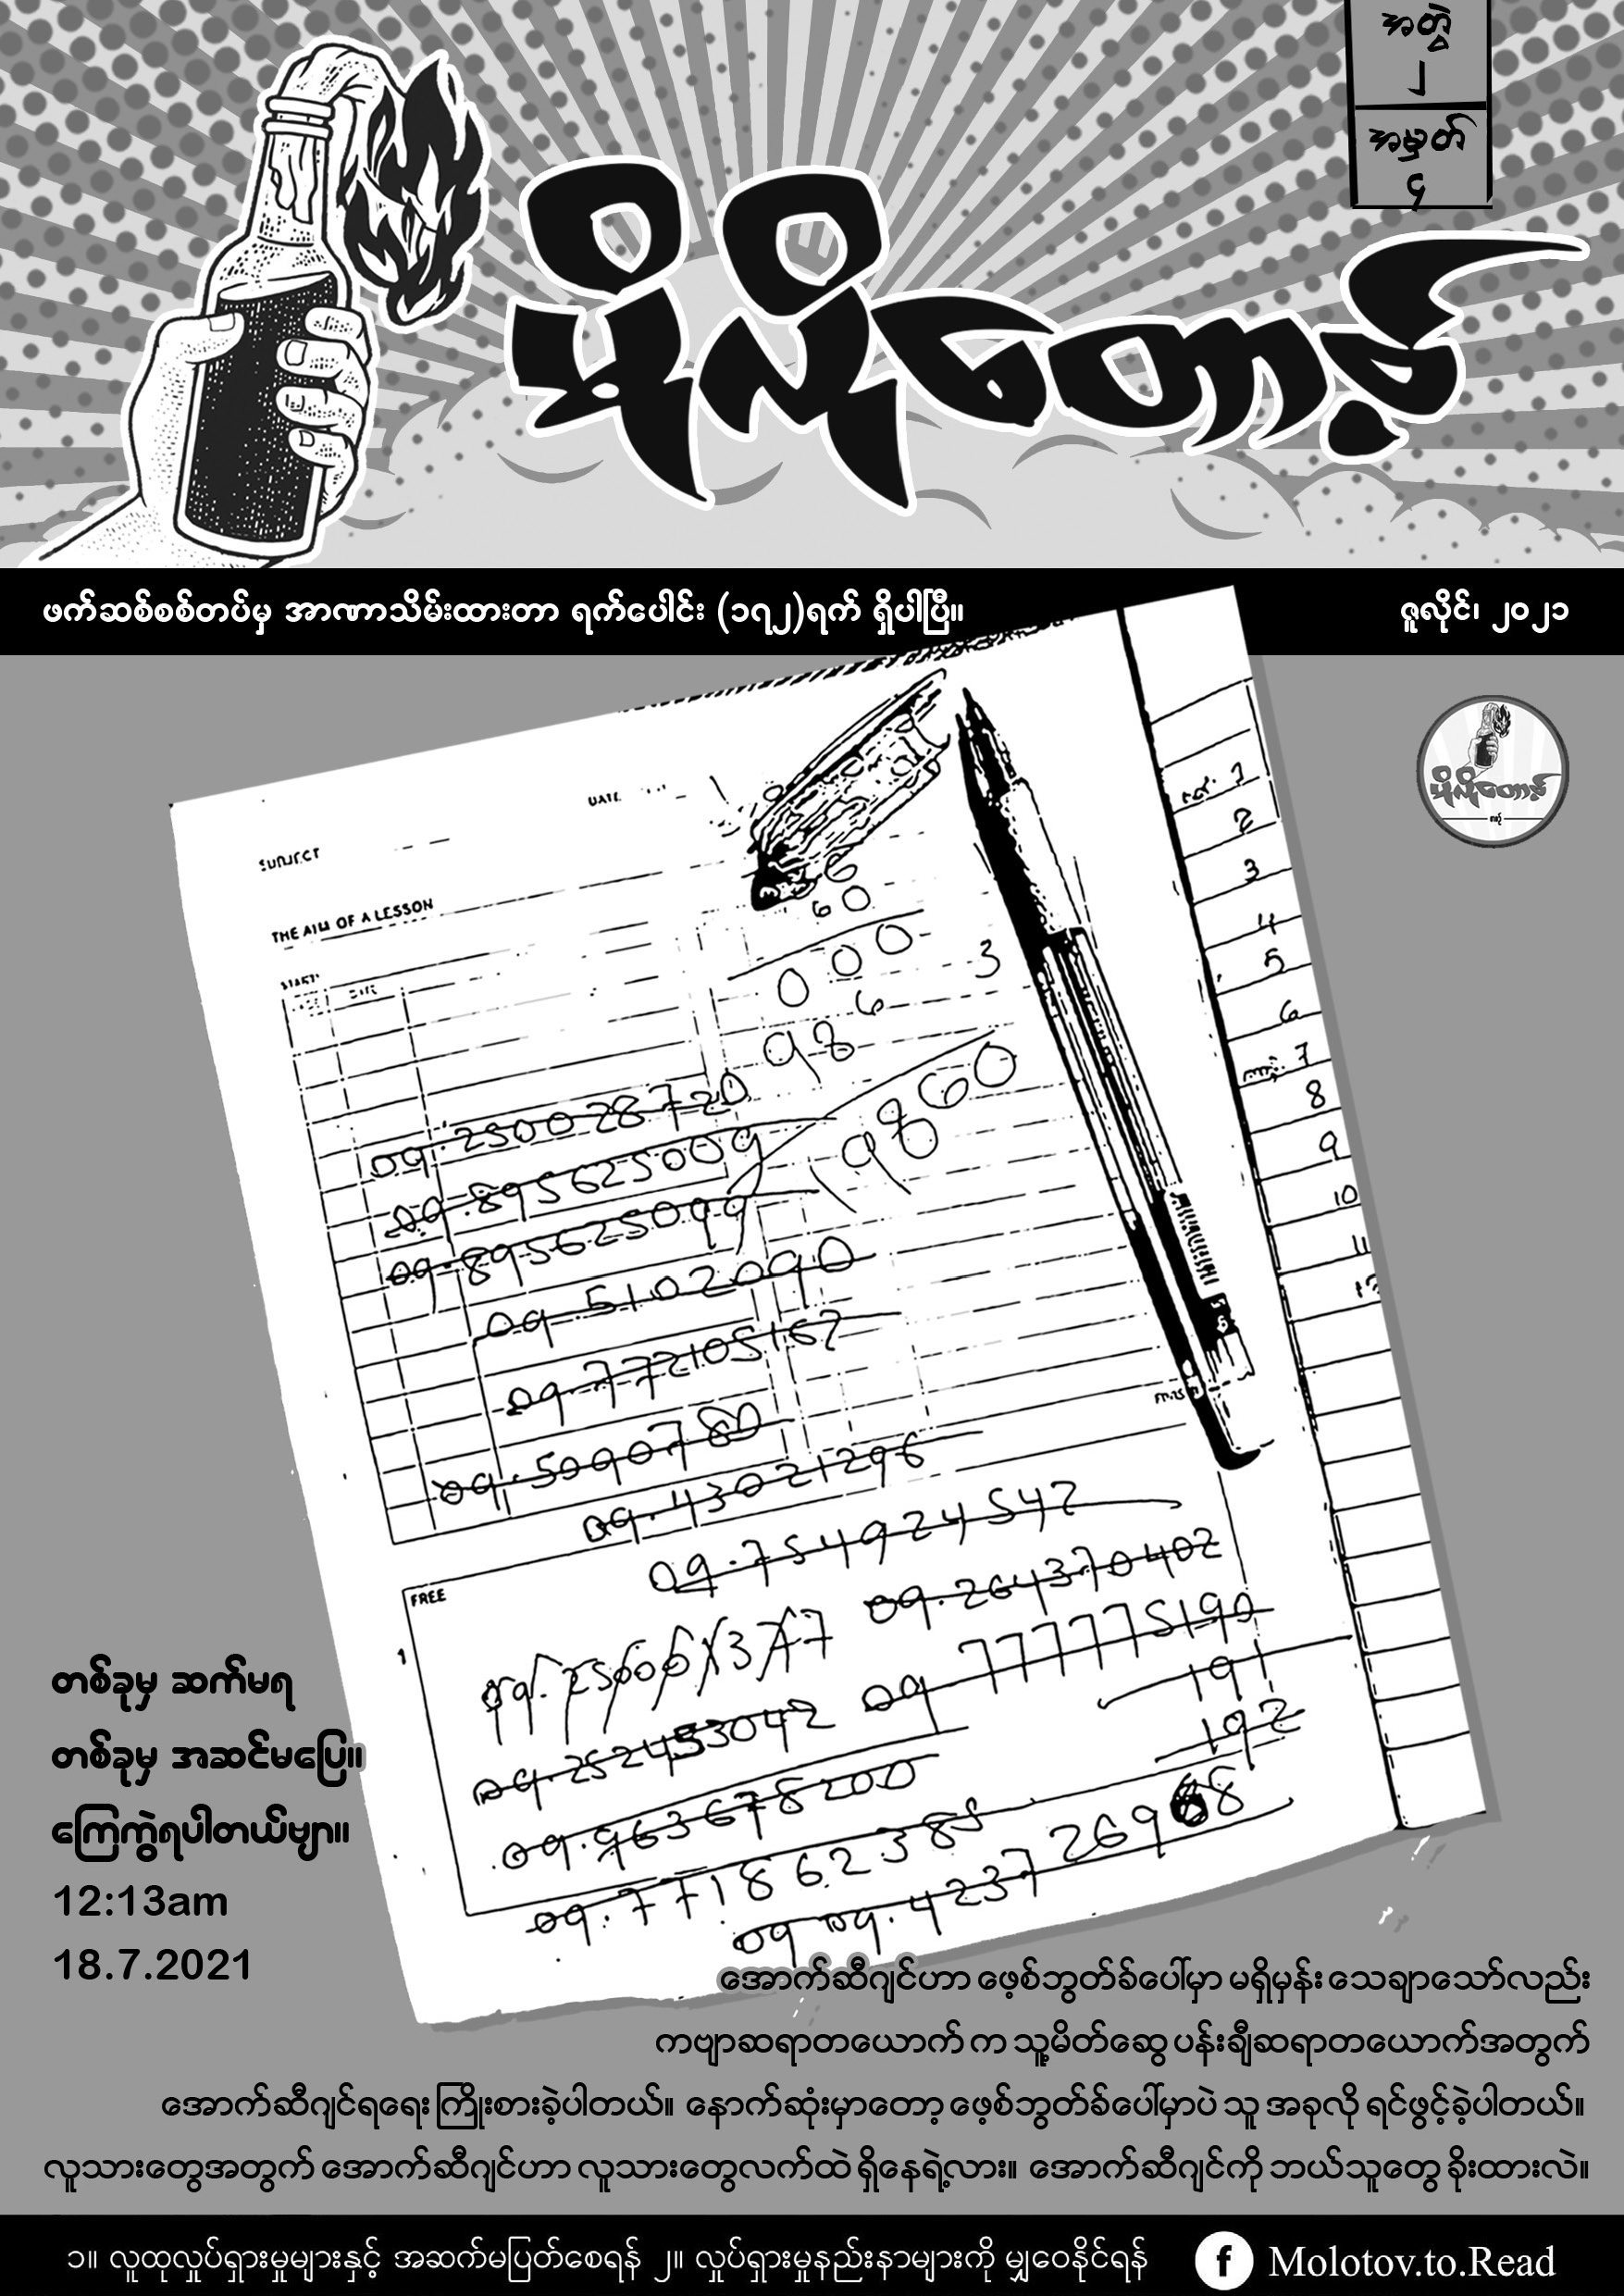 အတွဲ
၂
အမှတ်
၄
မိုလိုတော့ဗ်
ဖက်ဆစ်စစ်တပ်မှ အာဏာသိမ်းထားတာ ရက်ပေါင်း (၁၇၂)ရက် ရှိပါပြီ။
ဇူလိုင်၊ ၂၀၂၁
SUBJECT
DATE
THE AIM OF A LESSON
START
60
000
3
6
98
960
98
09.250028720
09.895625009
09.895625099
09 5102090
09.772105167
09.5090780
09.43021296
09.754924542
09.264370402
FREE
1
09.252453042
09 777775190
191
192
09.963678200
09.771862385
09 09.4237 269
1
2
3
4
5
6
7
8
9
10
11
12
တစ်ခုမှ ဆက်မရ
တစ်ခုမှ အဆင်မပြေ။
ကြေကွဲရပါတယ်ဗျာ။
12:13am
18.7.2021
အောက်ဆီဂျင်ဟာ ဖေ့စ်ဘွတ်ခ်ပေါ်မှာ မရှိမှန်း သေချာသော်လည်း
ကဗျာဆရာတယောက် က သူ့မိတ်ဆွေ ပန်းချီဆရာတယောက်အတွက်
အောက်ဆီဂျင်ရရေး ကြိုးစားခဲ့ပါတယ်။ နောက်ဆုံးမှာတော့ ဖေ့စ်ဘွတ်ခ်ပေါ်မှာပဲ သူ အခုလို ရင်ဖွင့်ခဲ့ပါတယ်။
လူသားတွေအတွက် အောက်ဆီဂျင်ဟာ လူသားတွေလက်ထဲ ရှိနေရဲ့လား။ အောက်ဆီဂျင်ကို ဘယ်သူတွေ ခိုးထားလဲ။
၁။ လူထုလှုပ်ရှားမှုများနှင့် အဆက်မပြတ်စေရန် ၂။ လှုပ်ရှားမှုနည်းနာများကို မျှဝေနိုင်ရန်
Molotov.to.Read